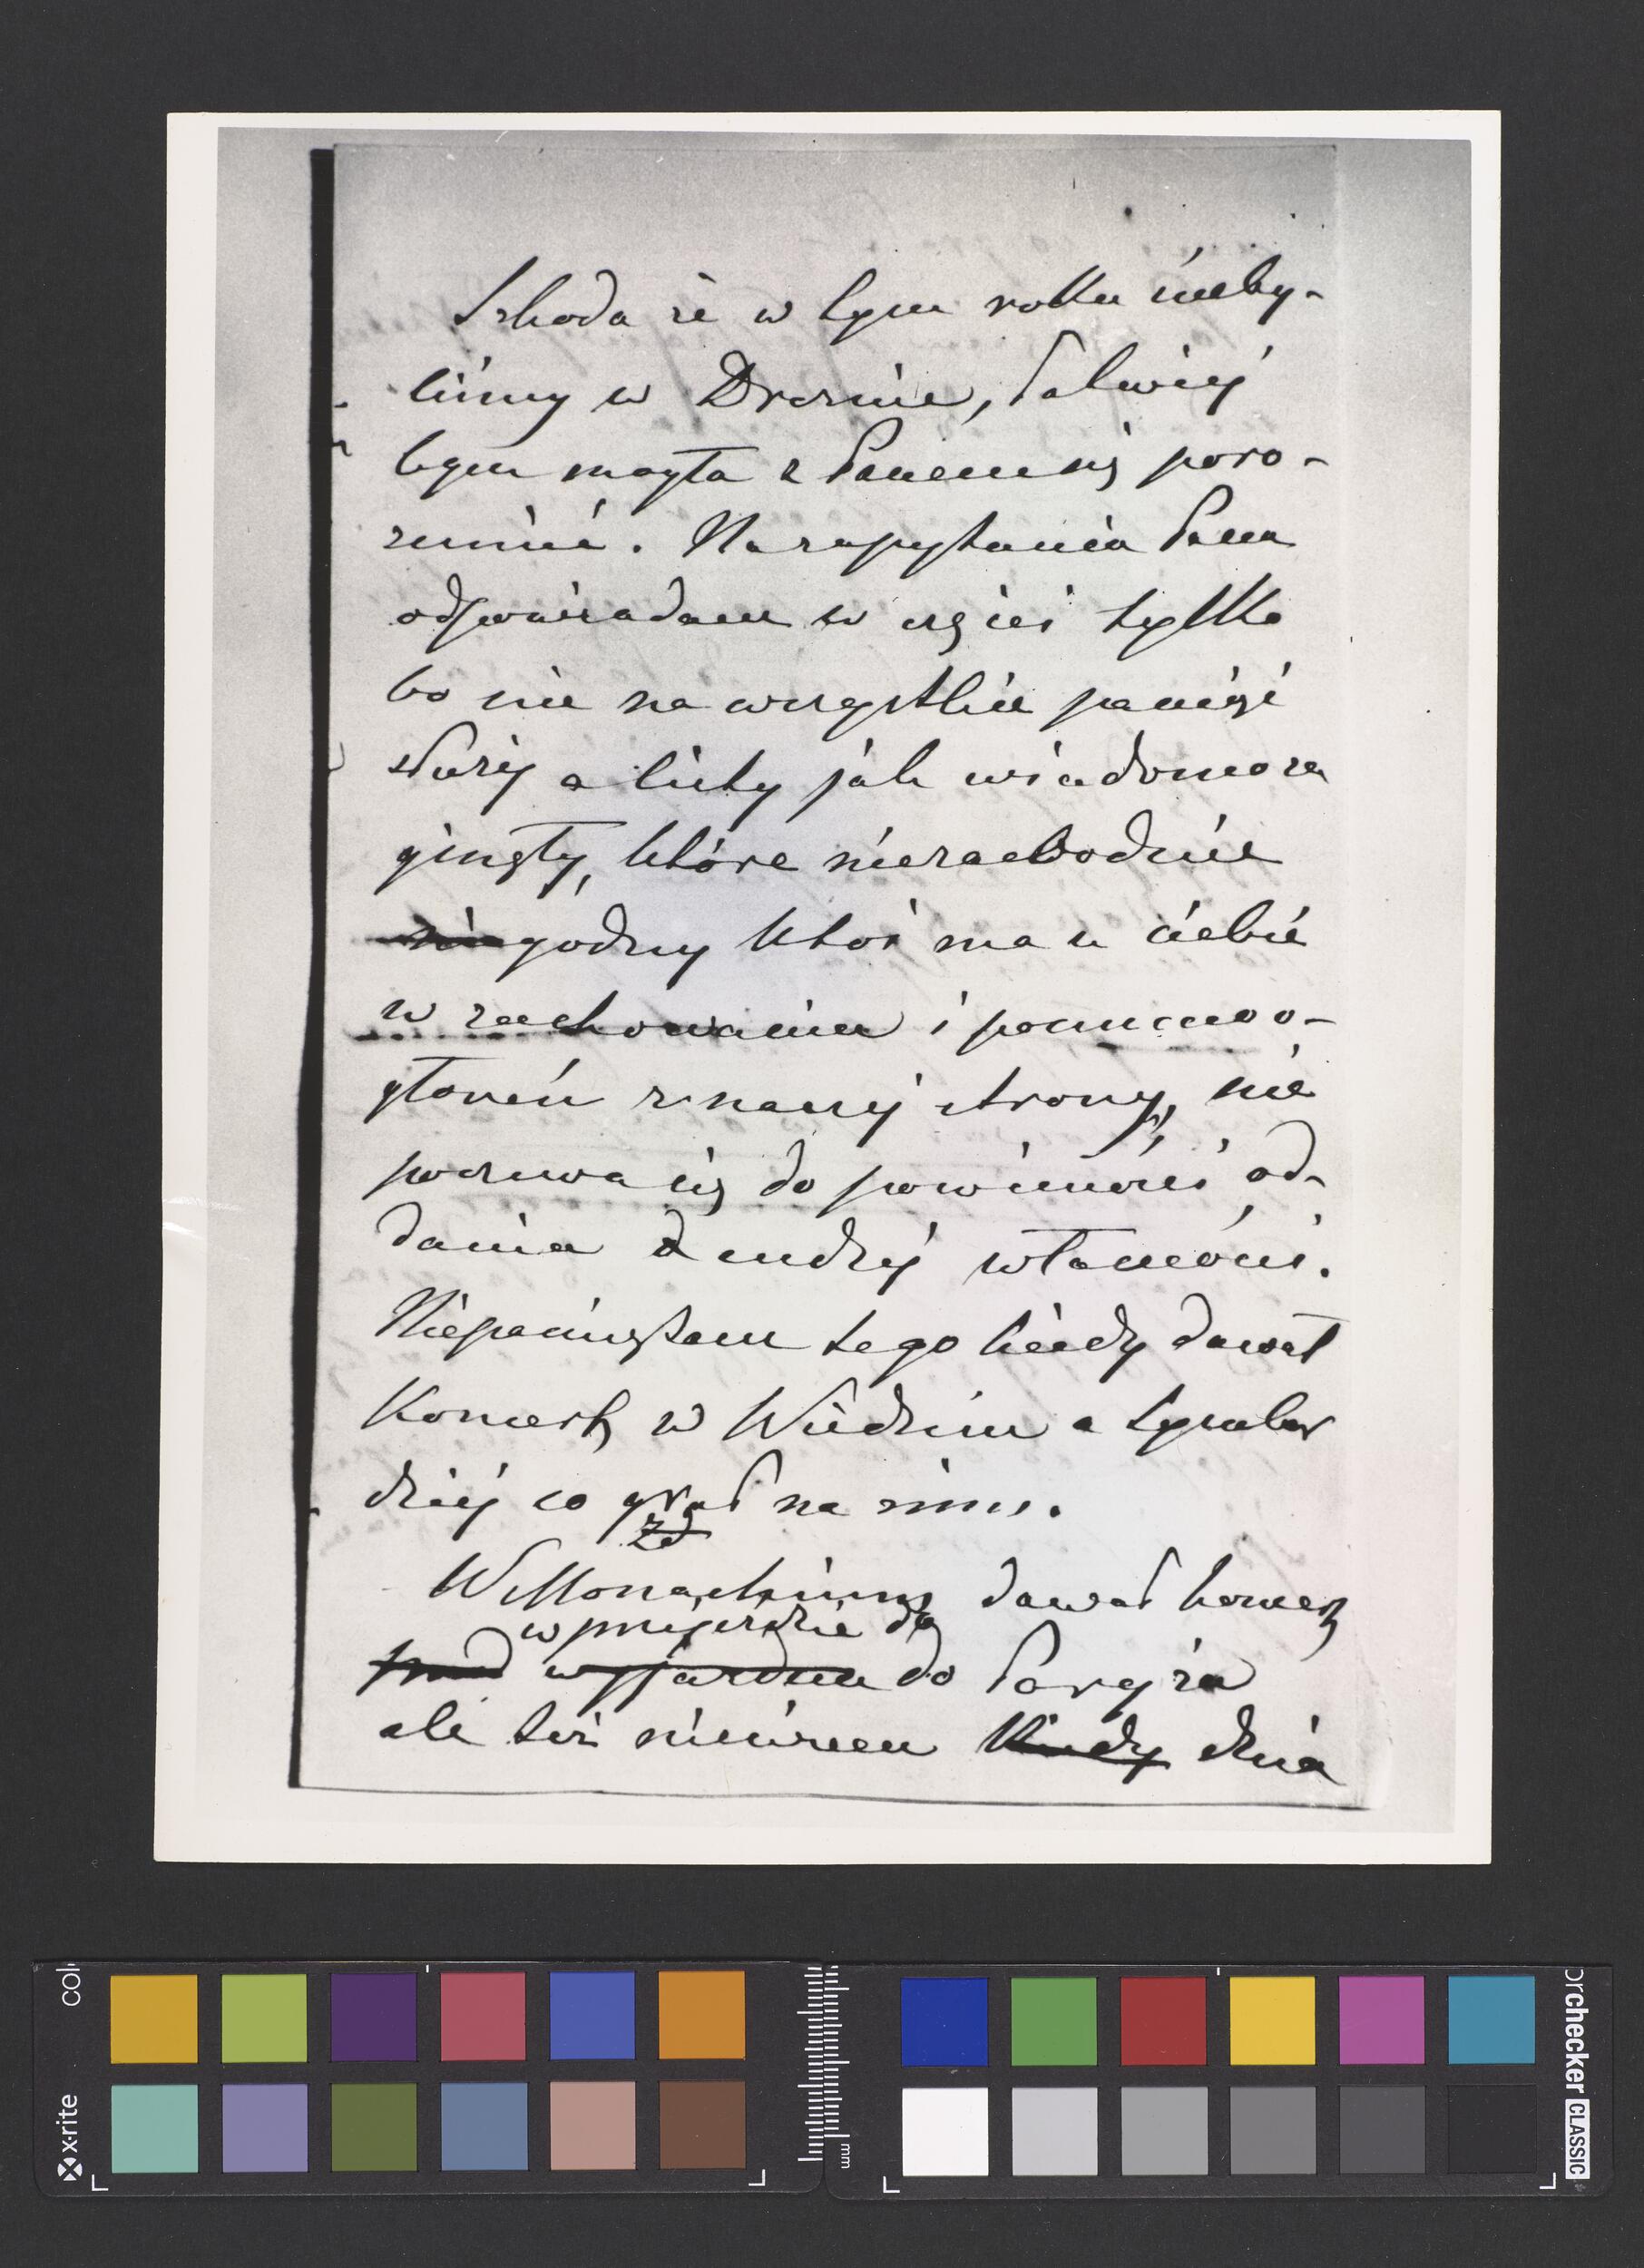 Szkoda że w tym roku nieby-
liśmy w Dreznie, łatwiej
bym mogła z Panem się poro-
zumieć. Na zapytania Pana
odpowiadam w części tylko
bo nie na wszystkie pamięć
służy a listy jak wiadomo za
ginęły, które niezachodnie
niegodny ktoś ma u siebie
w zachowaniu i pomimo o-
głoszeń z naszej strony, nie
poczuwa się do powinności od-
dania cudzej własności.
Niepamiętam tego kiedy dawał
Koncert w Wiedniu a tymbar
dziej co grał na nim.
W Monachium dawał koncert
w przejeździe do
przed wyjazdem do Paryża
ale też niewiem kiedy dnia
x-rite
colorchecker CLASSIC
mm